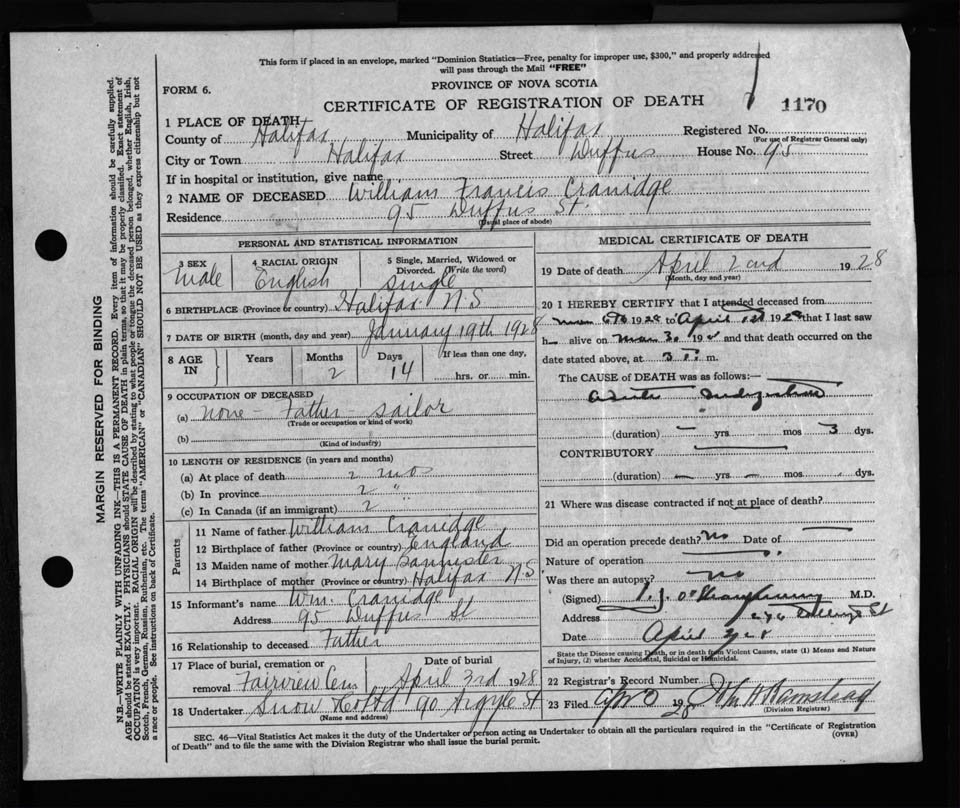 This form if placed in an envelope, marked "Dominion Statistics—Free, penalty for improper use, $300," and properly addressed
will pass through the Mail "FREE"
FORM 6.
PROVINCE OF NOVA SCOTIA
CERTIFICATE OF REGISTRATION OF DEATH
1170
1 PLACE OF DEATH
County of Halifax Municipality of Halifax Registered No.
(For use of Registrar General only)
City or Town Halifax Street Duffus House No. 95
If in hospital or institution, give name
2 NAME OF DECEASED William Francis Cranidge
Residence 95 Duffus St.
(Usual place of abode)
PERSONAL AND STATISTICAL INFORMATION
3 SEX Male
4 RACIAL ORIGIN English
5 Single, Married, Widowed or Divorced. (Write the word) Single
6 BIRTHPLACE (Province or country) Halifax N.S
7 DATE OF BIRTH (month, day and year) January 19th 1928
8 AGE IN Years Months 2 Days 14 If less than one day, hrs. or min.
9 OCCUPATION OF DECEASED
(a) none - Father - sailor
(Trade or occupation or kind of work)
(b)
(Kind of industry)
10 LENGTH OF RESIDENCE (in years and months)
(a) At place of death 2 mos
(b) In province 2 "
(c) In Canada (if an immigrant) 2
Parents
11 Name of father William Cranidge
12 Birthplace of father (Province or country) England
13 Maiden name of mother Mary Bannister
14 Birthplace of mother (Province or country) Halifax N.S
15 Informant's name Wm. Cranidge
Address 95 Duffus St
16 Relationship to deceased Father
17 Place of burial, cremation or removal Fairview Cem
Date of burial April 3rd 1928
18 Undertaker Snow & Co Ltd 90 Argyle St
(Name and address)
MEDICAL CERTIFICATE OF DEATH
19 Date of death April 2nd 1928
(Month, day and year)
20 I HEREBY CERTIFY that I attended deceased from
1928 to April 1928 that I last saw
h alive on Mar 30 19 and that death occurred on the
date stated above, at 3 m.
The CAUSE of DEATH was as follows:—
acute Indigestion
(duration) — yrs mos 3 dys.
CONTRIBUTORY
(duration) — yrs — mos — dys.
21 Where was disease contracted if not at place of death?
Did an operation precede death? No Date of
Nature of operation
Was there an autopsy? no
(Signed) M.D.
Address St
Date April
State the Disease causing Death, or in death from Violent Causes, state (1) Means and Nature
of Injury, (2) whether Accidental, Suicidal or Homicidal.
22 Registrar's Record Number
23 Filed 1928
(Division Registrar)
SEC. 46—Vital Statistics Act makes it the duty of the Undertaker or person acting as Undertaker to obtain all the particulars required in the "Certificate of Registration
of Death" and to file the same with the Division Registrar who shall issue the burial permit.
(OVER)
MARGIN RESERVED FOR BINDING
N.B.—WRITE PLAINLY WITH UNFADING INK—THIS IS A PERMANENT RECORD. Every item of information should be carefully supplied.
AGE should be stated EXACTLY. PHYSICIANS should STATE CAUSE OF DEATH in plain terms, so that it may be properly classified. Exact statement of
OCCUPATION is very important. RACIAL ORIGIN will be described by stating to what people or tongue the deceased person belonged, whether English, Irish,
Scotch, French, German, Russian, Ruthenian, etc. The terms "AMERICAN" or "CANADIAN" SHOULD NOT BE USED as they express citizenship but not
a race or people. See instructions on back of Certificate.